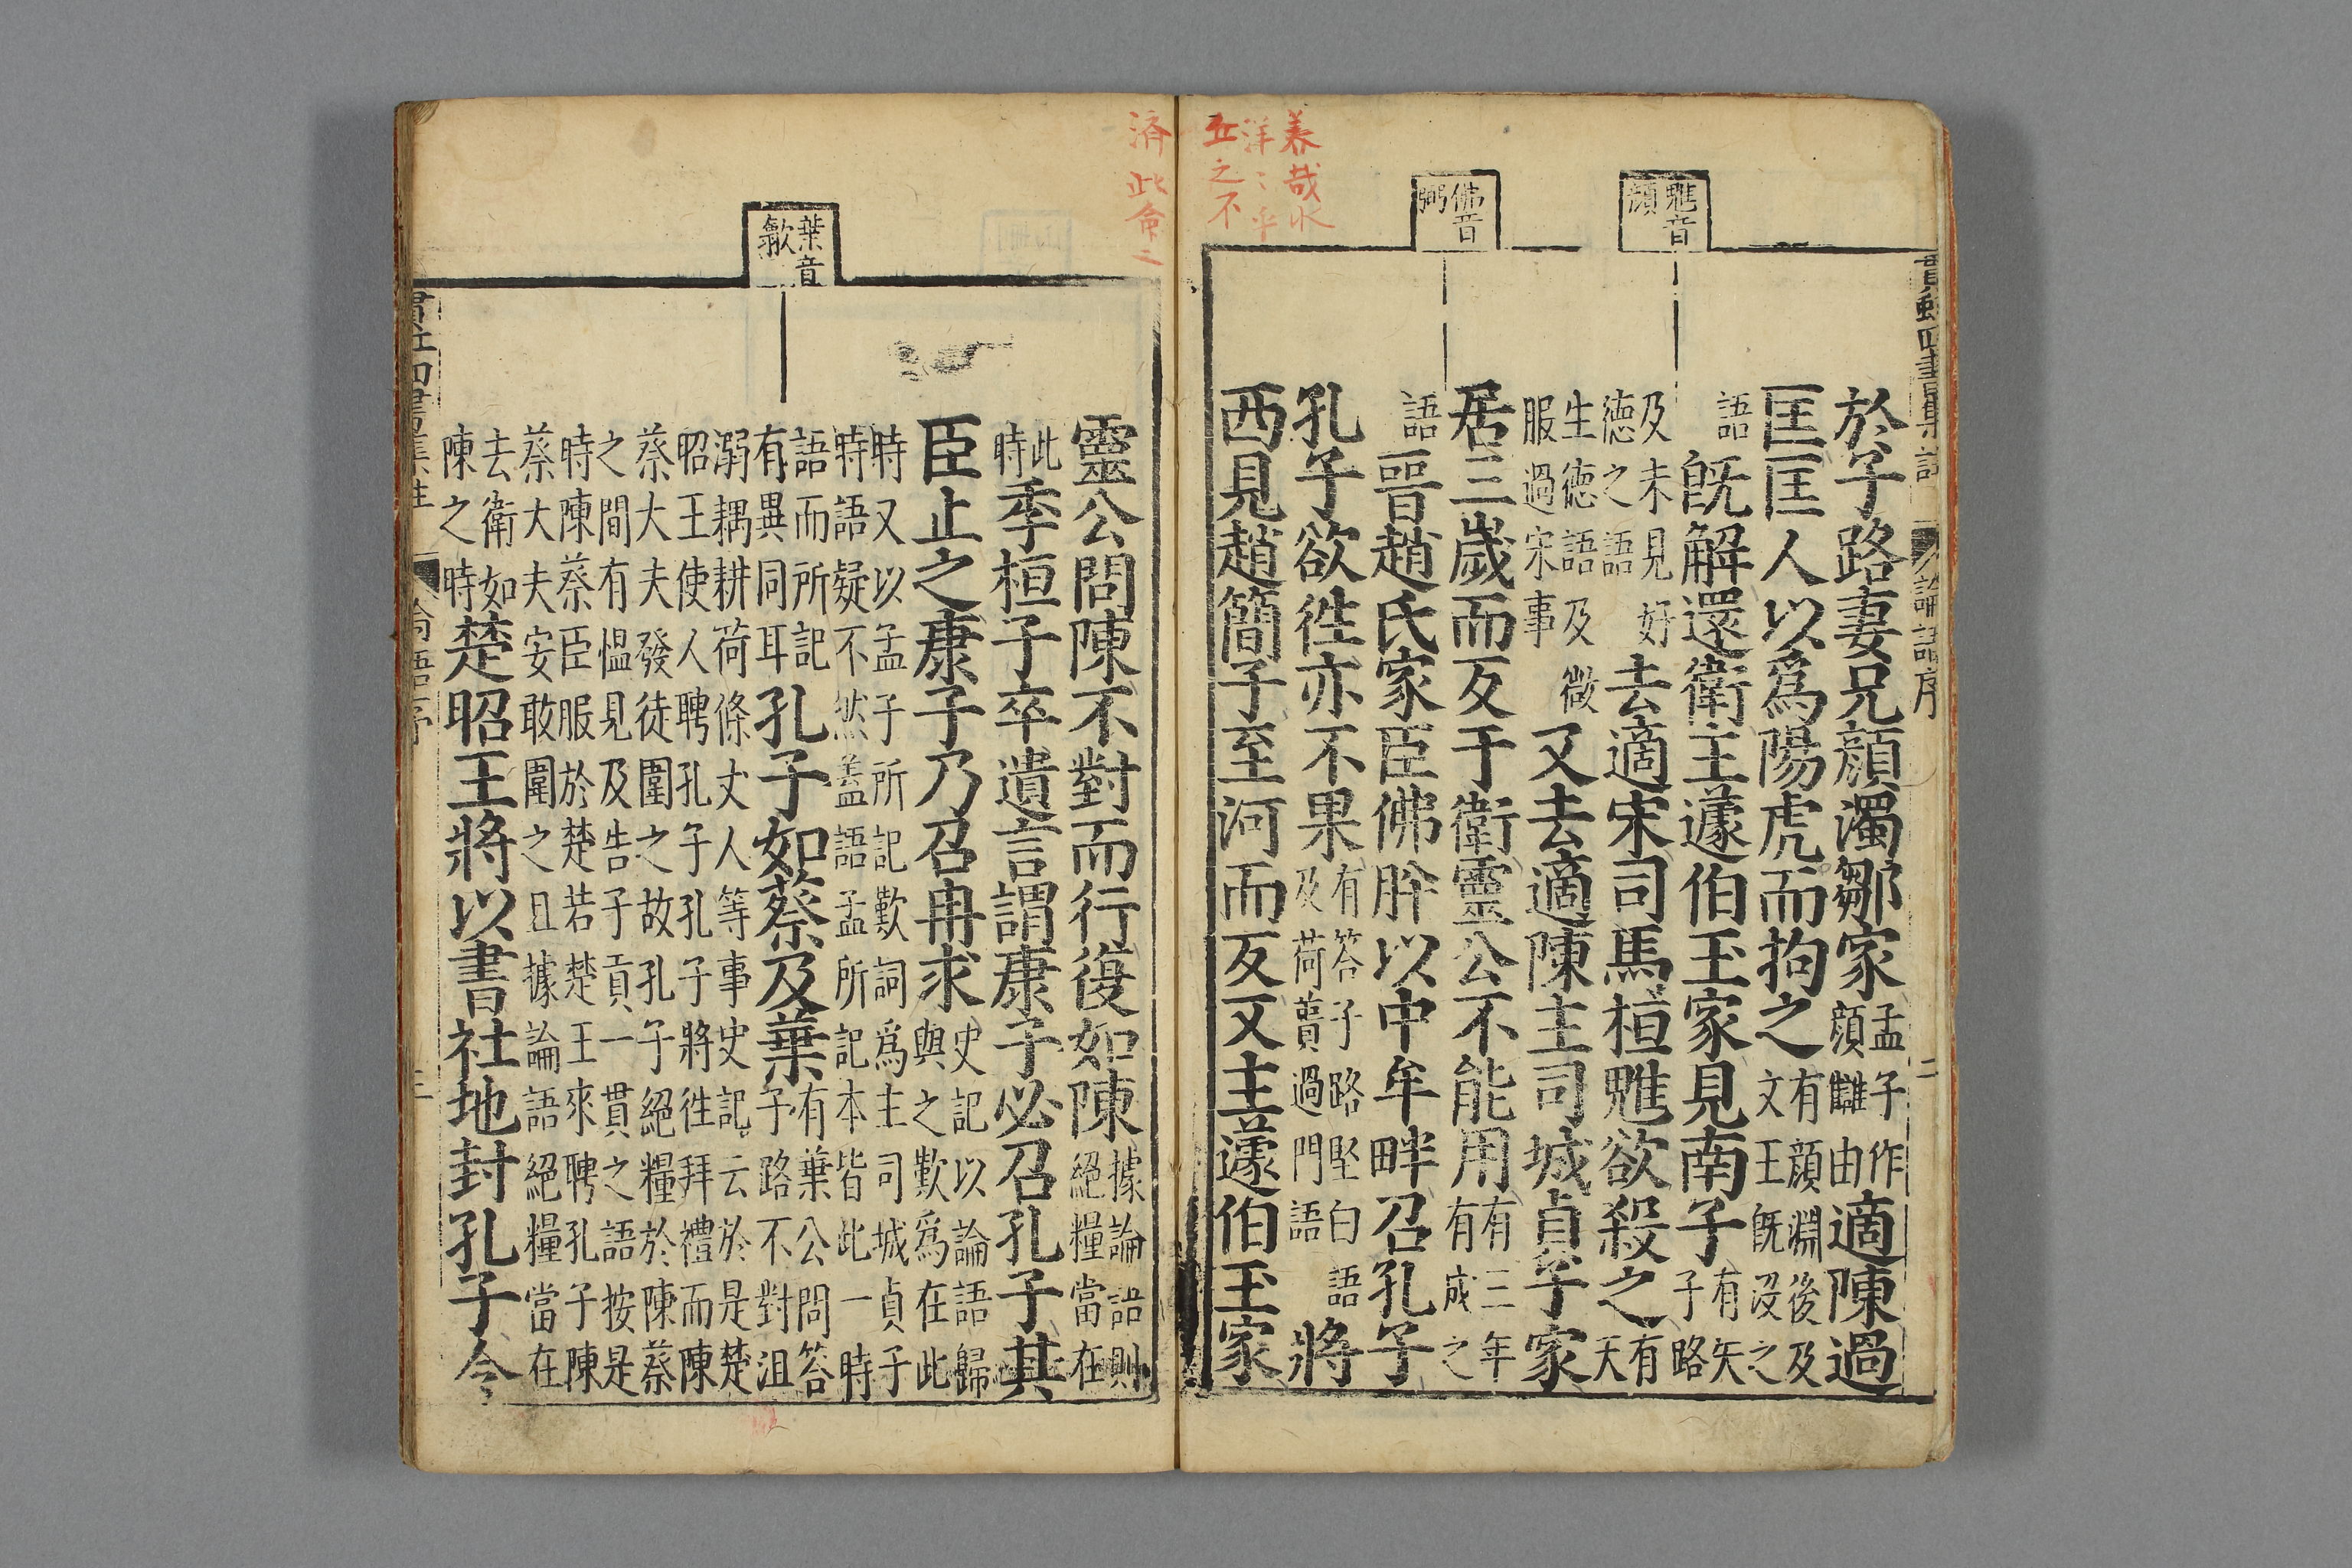 美哉水
洋〻乎
丘之不
濟此命
魋音
頽
佛音
弼
於子路妻兄顔濁鄒家孟子作顔讎由適陳過
匡匡人以爲陽虎而拘之有顔淵後及文王旣沒之
語旣解還衛主蘧伯玉家見南子有矢子路
及未見好德之語去適宋司馬桓魋欲殺之有天
生德語及微服過宋事又去適陳主司城貞子家
居三歲而反于衛靈公不能用有三年有成之
語晉趙氏家臣佛肸以中牟畔召孔子
孔子欲徃亦不果有答子路堅白語及荷蕢過門語將
西見趙簡子至河而反又主蘧伯玉家
論語序
二
葉音
歙
靈公問陳不對而行復如陳據論語則絕糧當在
此時季桓子卒遺言謂康子必召孔子其
臣止之康子乃召冉求史記以論語歸與之歎爲在此
時又以孟子所記歎詞爲主司城貞子時語疑不然盖語孟所記本皆此一時
語而所記有異同耳孔子如蔡及葉有葉公問答子路不對沮
溺耦耕荷蓧丈人等事史記云於是楚昭王使人聘孔子孔子將徃拜禮而陳
蔡大夫發徒圍之故孔子絕糧於陳蔡之間有慍見及告子貢一貫之語按是
時陳蔡臣服於楚若楚王來聘孔子陳蔡大夫安敢圍之且據論語絕糧當在
去衛如陳之時楚昭王將以書社地封孔子令
四書集註
論語序